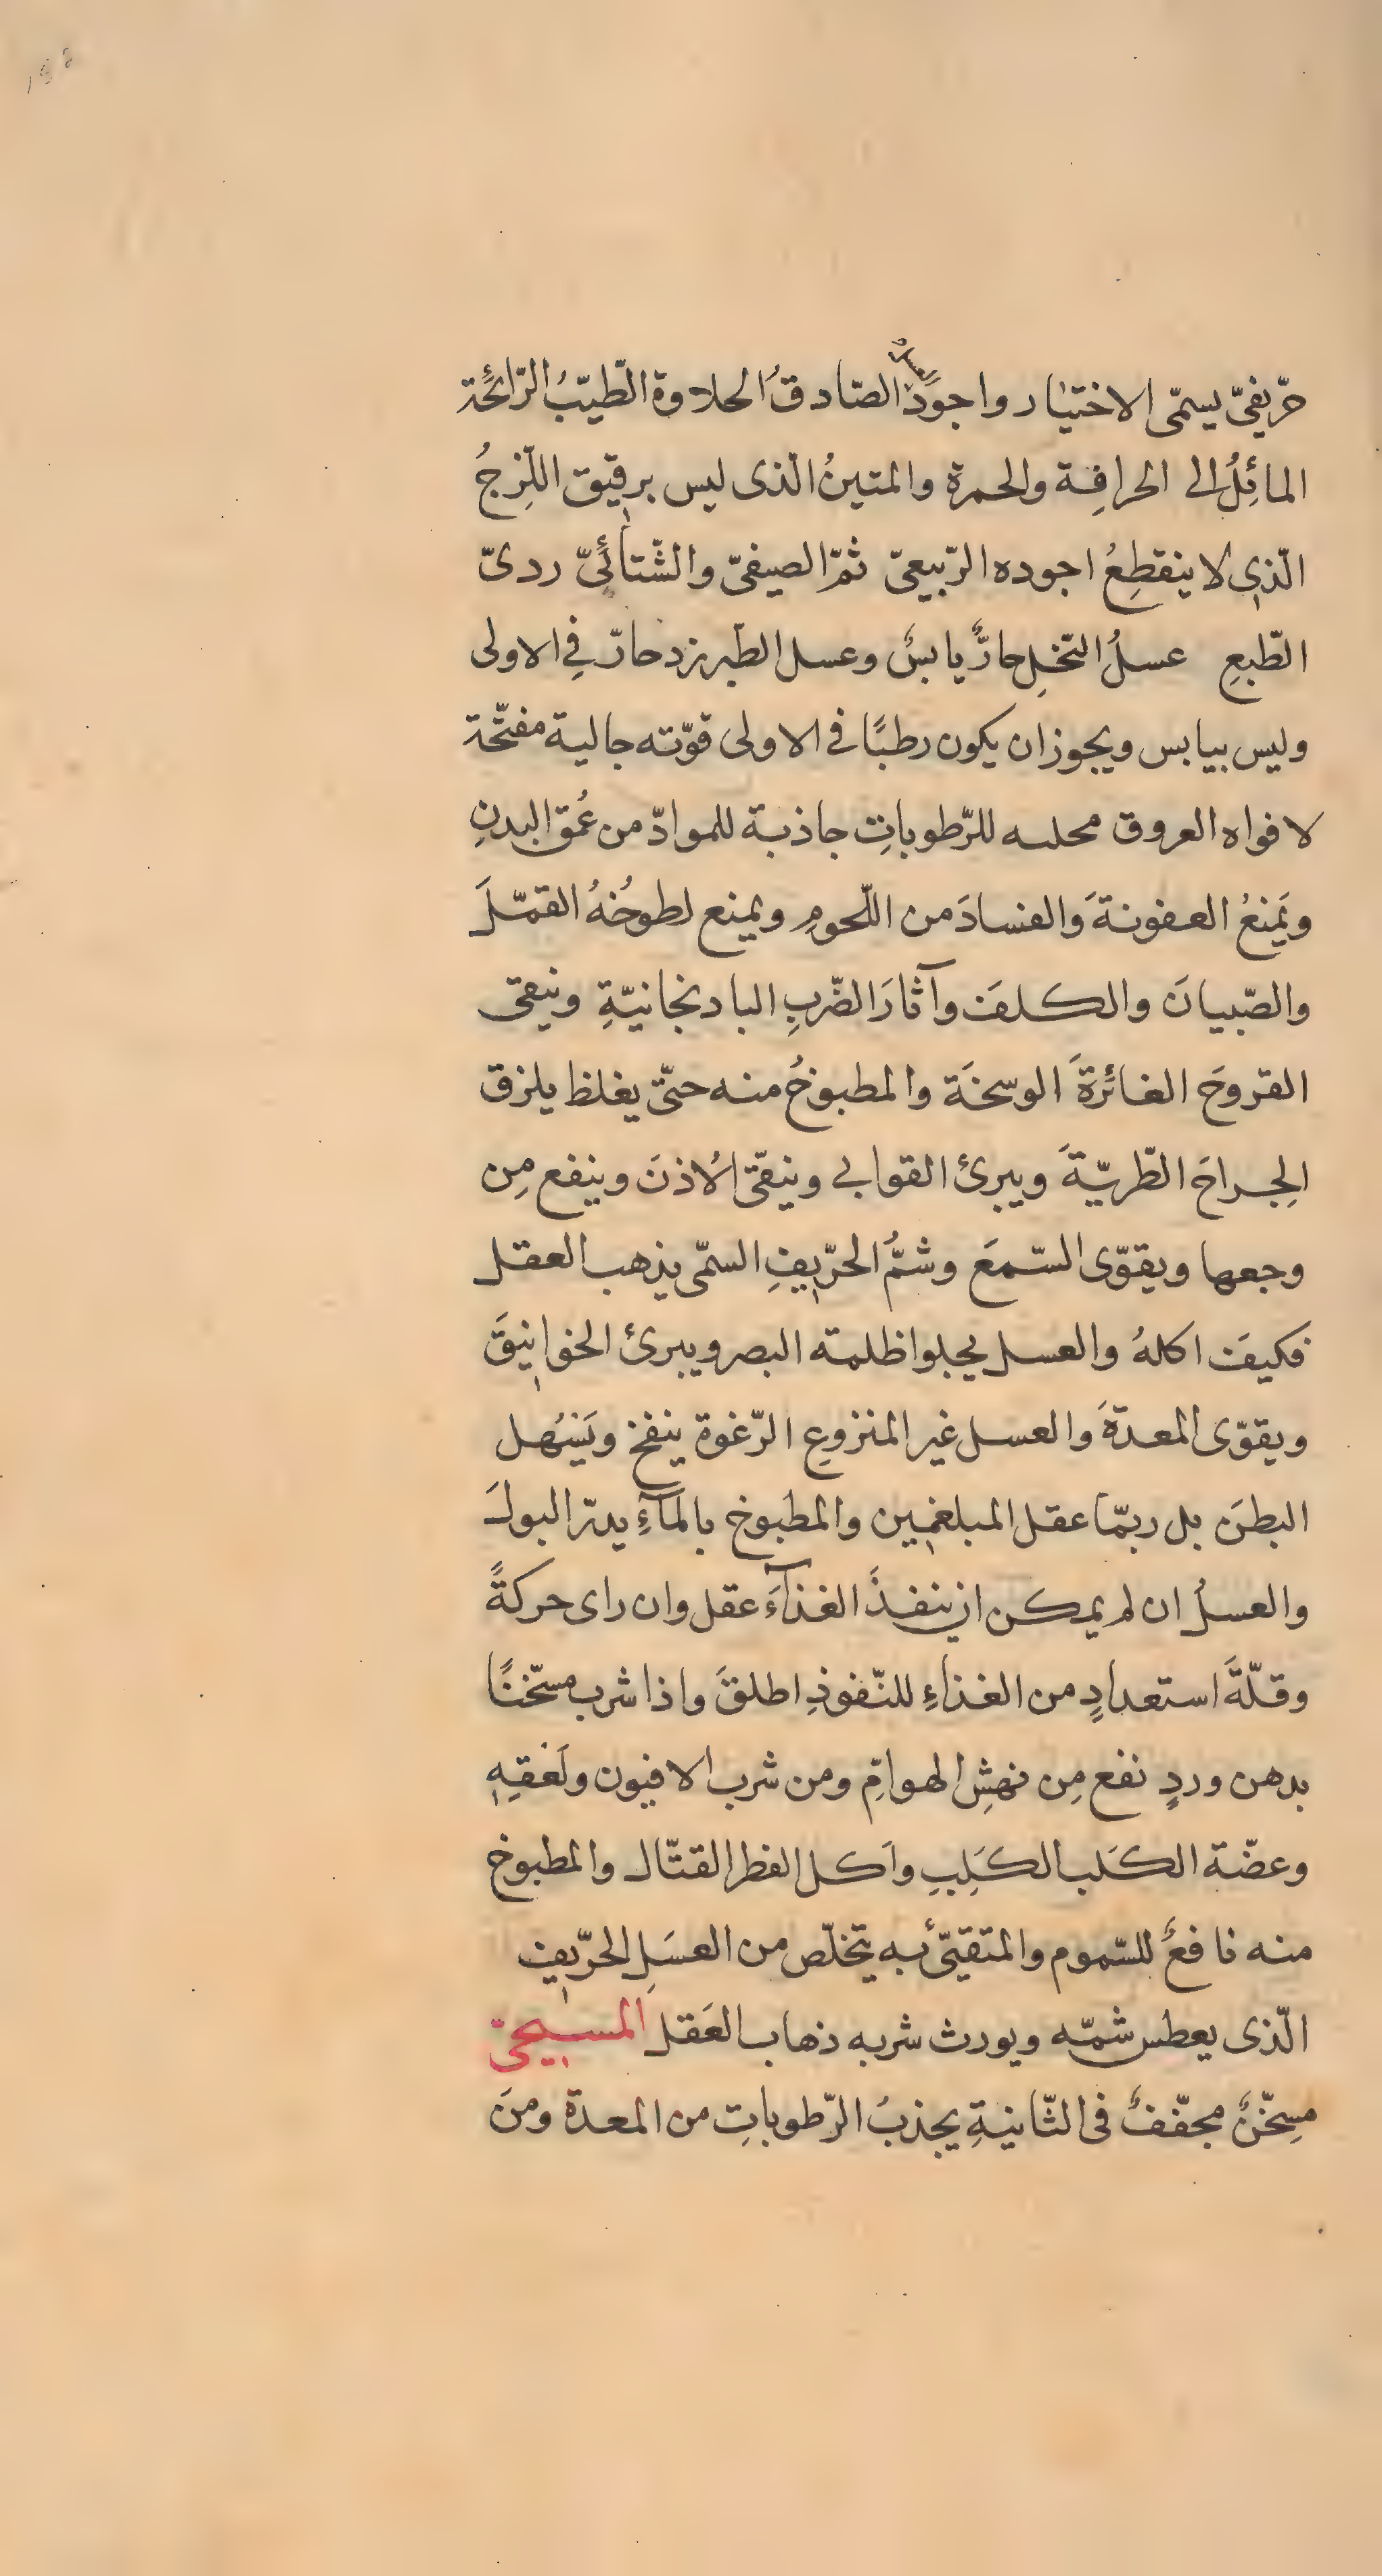 حرّيفىّ يسمّى الاختيار واجود الصّادقُ الحلاوة الطّيّبُ الرّائحة
المائِلُ الى الحرافِة والحمرة والمتينُ الّذى ليس برقيق اللّزِجُ
الّذى لا ينقطِعُ اجوده الرّبيعىّ ثمّ الصيفىّ والشّتائىّ ردىّ
الطّبعِ عسلُ النّحلِ حارٌّ يابسٌ وعسل الطّبرزد حارّ فِى الاولى
وليس بيابس ويجوز ان يكون رطبًا فى الاولى قوّته جالية مفتّحة
لافواه العروق محلله للرّطوباتِ جاذبة للموادّ من عُمق البدنِ
ويَمنعُ العفونةَ والفسادَ من اللّحومِ ويمنع لطوخُهُ القمّلَ
والصّبيانَ والكلفَ وآثارَ الضّربِ الباذنجانيّةِ وينقى
القروحَ الغائرةَ الوسخَة والمطبوخُ منه حتّى يغلظ يلزق
الِجراحَ الطّريّةَ ويبرئ القوابى وينقّى الاُذنَ وينفع مِن
وجعها ويقوّى السّمعَ وشمُّ الحرّيفِ السمّى يذهب العقل
فكيفَ اكلهُ والعسل يجلوا ظلمته البصر ويبرئ الخوانيقَ
ويقوّى المعدةَ والعسل غير المنزوعِ الرّغوة ينفخ ويَسُهل
البطنَ بل ربمّا عقل المبلغمين والمطبوخ بالمآءِ يدرّ البولَ
والعسلُ ان لم يمكن ان ينفذَ الغذآءَ عقل وان راى حركةً
وقلّةَ استعدادٍ من الغذاءِ للنّفوذِ اطلقَ واذا شرب مسخّنًا
بدهن وردٍ نفع مِن نهشِ الهوامِّ ومن شرب الافيون ولَعقِهِ
وعضّة الكَلب الكَلِبِ واَكل الفطر القتّال والمطبوخ
منه نافعٌ للسّموم والمتقيّئ به يتخلّص من العسَلِ الحرّيف
الّذى يعطس شمّه ويورث شربه ذهاب العَقل المسيحىّ
مسِخّنٌ مجفّفٌ فى الثّانيةِ يجذبُ الرّطوباتِ من المعدة ومنَ